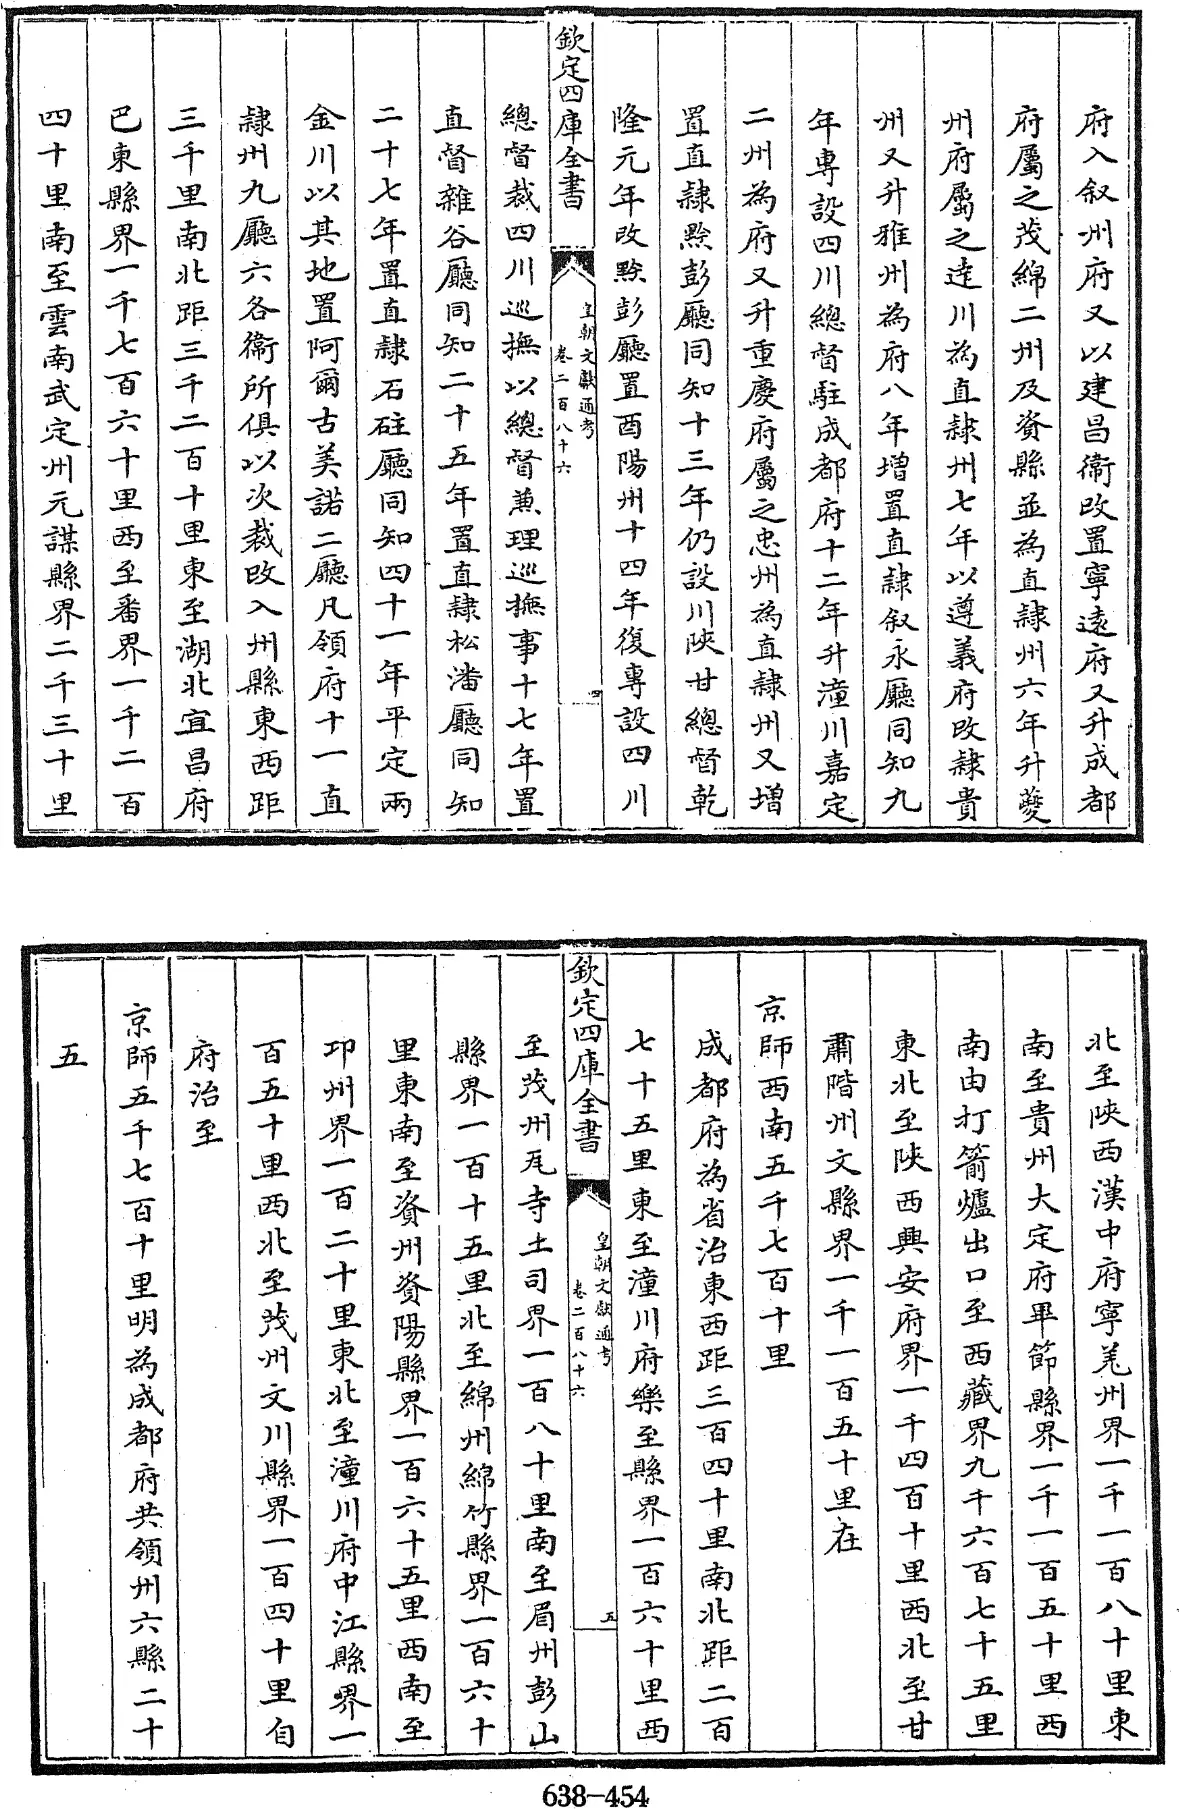 府入叙州府又以建昌衛改置寧遠府又升成都
府屬之茂綿二州及資縣並為直隸州六年升夔
州府屬之達川為直隸州七年以遵義府改隸貴
州又升雅州為府八年增置直隸叙永廳同知九
年專設四川總督駐成都府十二年升潼川嘉定
二州為府又升重慶府屬之忠州為直隸州又增
置直隸黔彭廳同知十三年仍設川陝甘總督乾
隆元年改黔彭廳置酉陽州十四年復專設四川
欽定四庫全書
皇朝文獻通考
卷二百八十六
四
總督裁四川巡撫以總督兼理巡撫事十七年置
直督雜谷廳同知二十五年置直隸松潘廳同知
二十七年置直隸石砫廳同知四十一年平定兩
金川以其地置阿爾古美諾二廳凡領府十一直
隸州九廳六各衛所俱以次裁改入州縣東西距
三千里南北距三千二百十里東至湖北宜昌府
巴東縣界一千七百六十里西至番界一千二百
四十里南至雲南武定州元謀縣界二千三十里
北至陝西漢中府寧羌州界一千一百八十里東
南至貴州大定府畢節縣界一千一百五十里西
南由打箭爐出口至西藏界九千六百七十五里
東北至陝西興安府界一千四百十里西北至甘
肅階州文縣界一千一百五十里在
京師西南五千七百十里
成都府為省治東西距三百四十里南北距二百
七十五里東至潼川府樂至縣界一百六十里西
欽定四庫全書
皇朝文獻通考
卷二百八十六
五
至茂州瓦寺土司界一百八十里南至眉州彭山
縣界一百十五里北至綿州綿竹縣界一百六十
里東南至資州資陽縣界一百六十五里西南至
邛州界一百二十里東北至潼川府中江縣界一
百五十里西北至茂州文川縣界一百四十里自
府治至
京師五千七百十里明為成都府共領州六縣二十
五
638-454